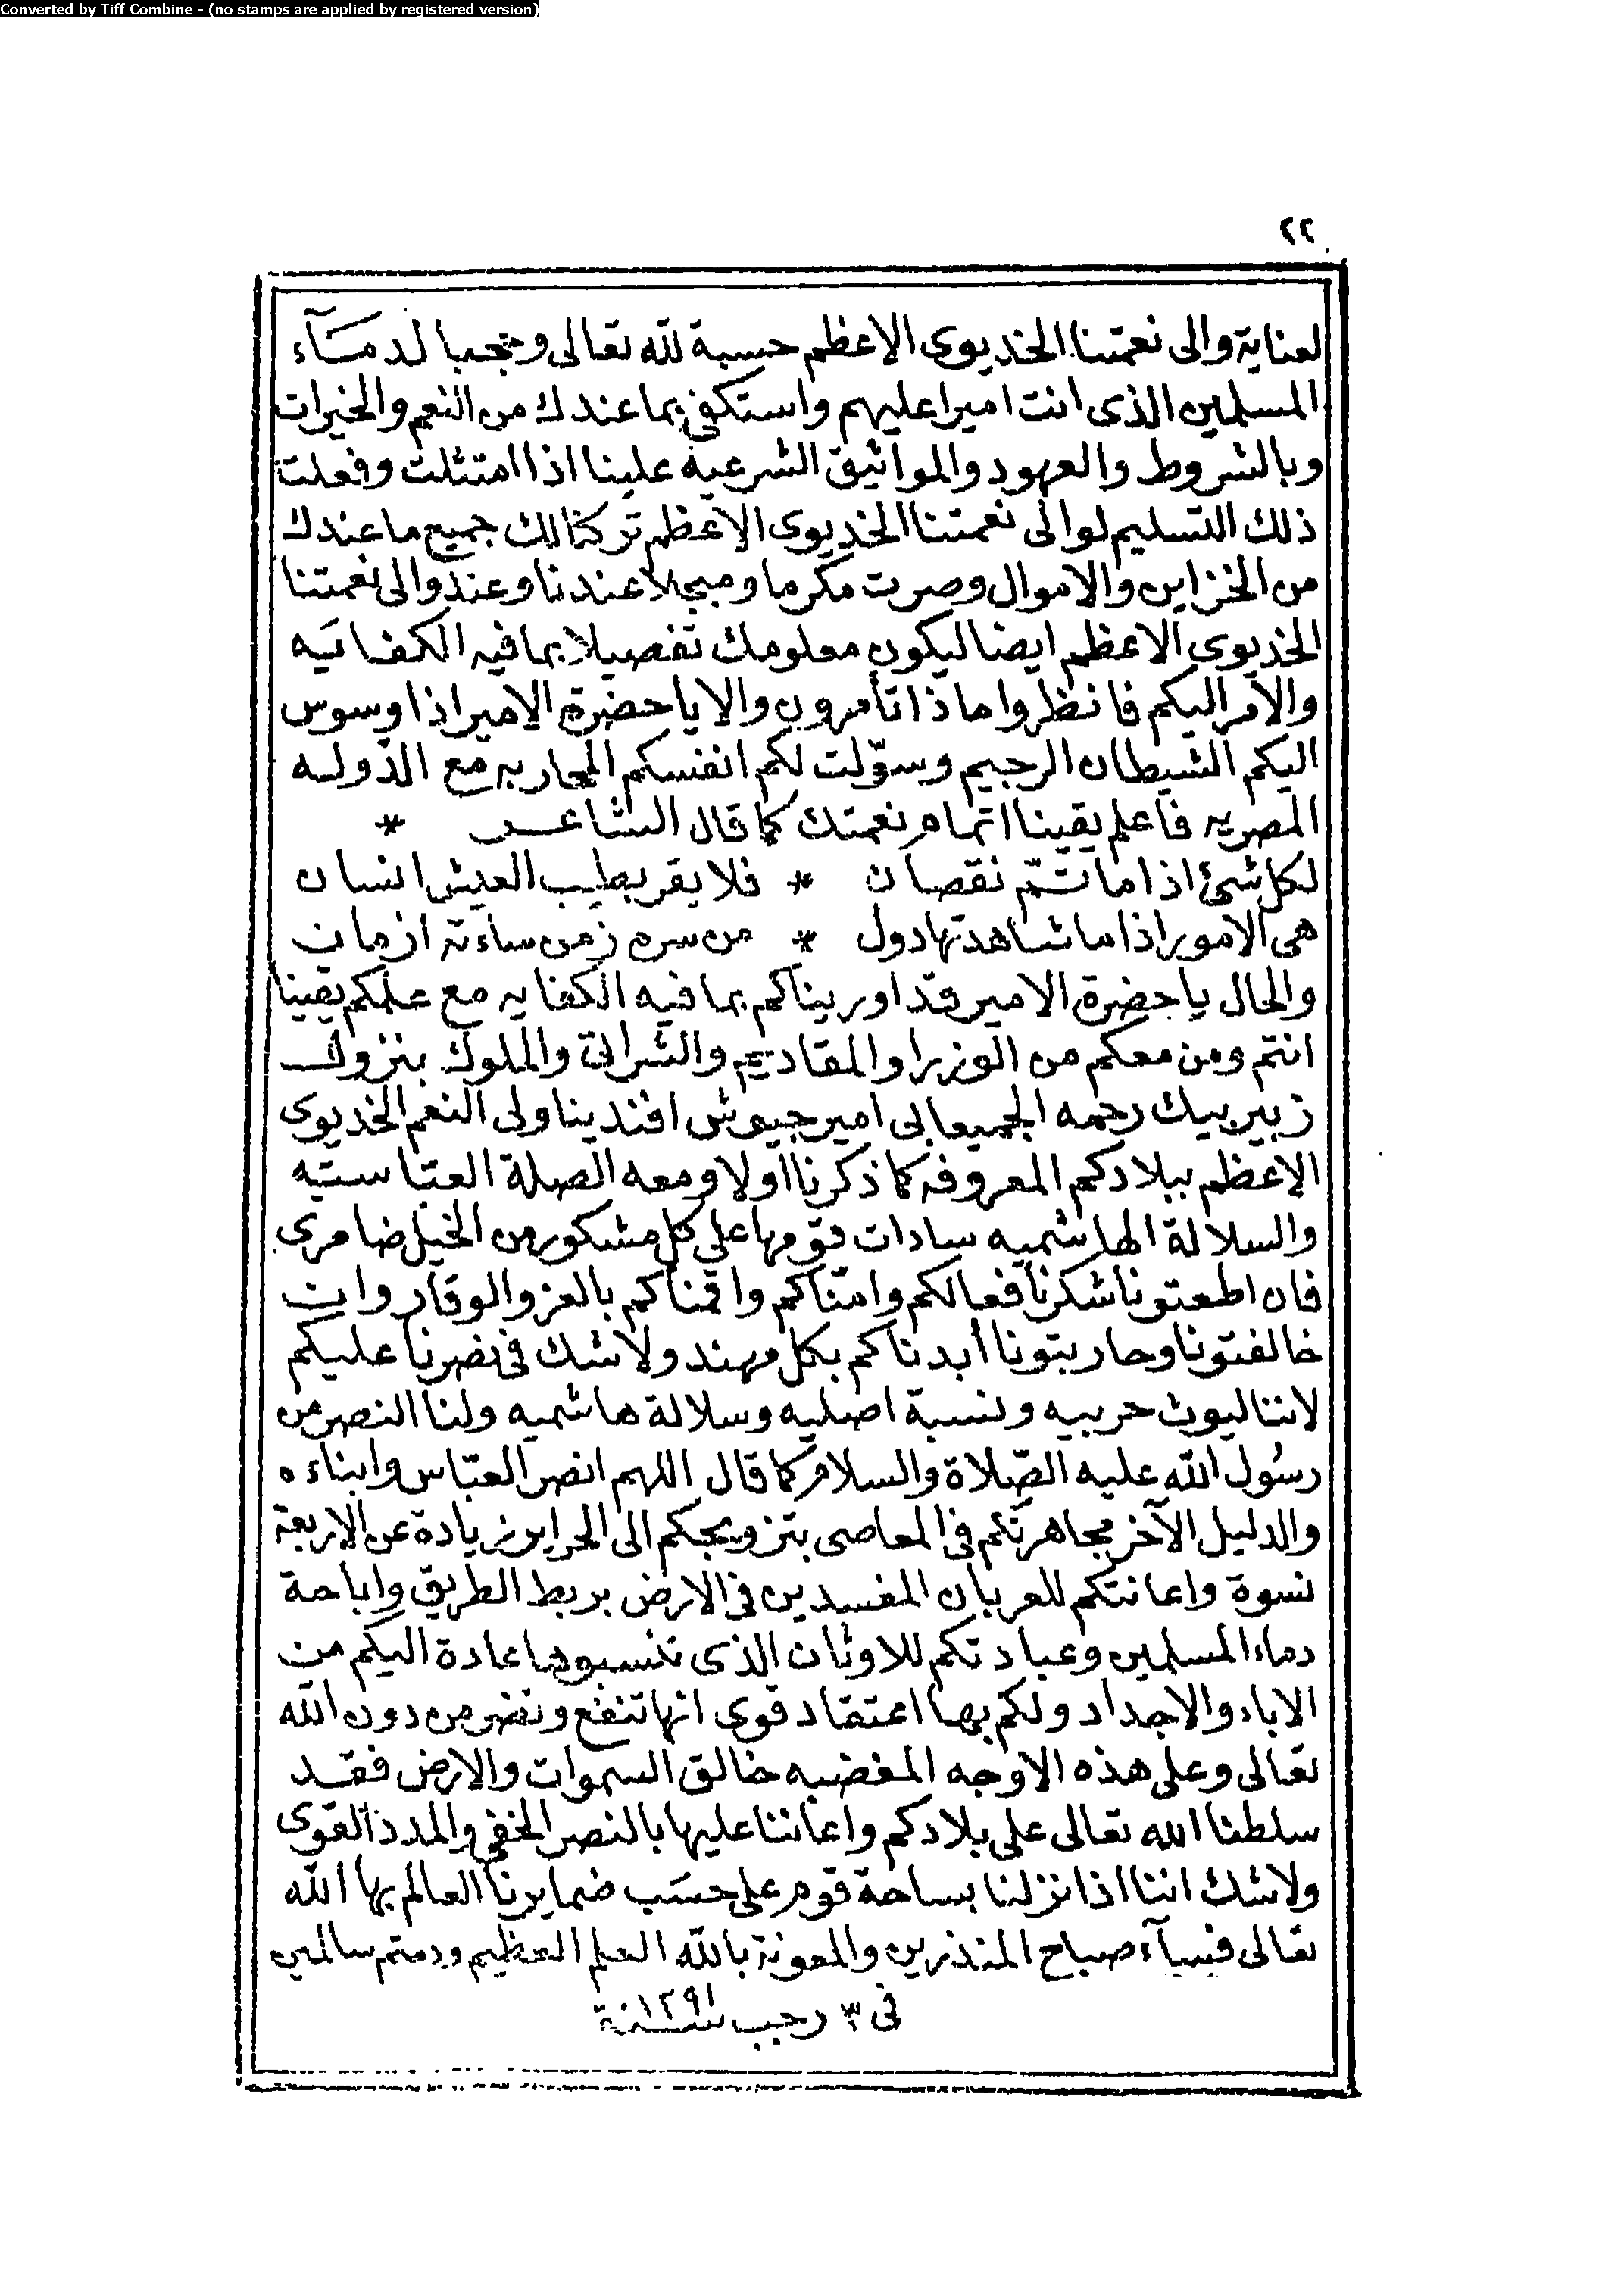 Converted by Tiff Combine - (no stamps are applied by registered version)
٢٢
لعناية والى نعمتنا الخديوى الاعظم حسبة لله تعالى وحجبا لدمآء
المسلمين الذى انت اميرا عليهم واستكفى بما عندك من النعم والخيرات
وبالشروط والعهود والمواثيق الشرعيه علينا اذا امتثلت وفعلت
ذلك التسليم لوالى نعمتنا الخديوى الاعظم تركنا لك جميع ما عندك
من الخزاين والاموال وصرت مكرما ومبجلا عندنا وعند والى نعمتنا
الخديوى الاعظم ايضا ليكون معلومك تفصيلا بما فيه الكفايه
والامر اليكم فانظروا ماذا تأمرون والا يا حضرة الامير اذا وسوس
اليكم الشيطان الرجيم وسوّلت لكم انفسكم المحاربه مع الدوله
المصريه فاعلم يقينا اتمام نعمتك كما قال الشاعر *
لكل شئ اذا ما تمّ نقصان * فلا يغر بطيب العيش انسان
هى الامور اذا ما شاهدتها دول * من سره زمن ساءته ازمان
والحال يا حضرة الامير قد اوريناكم بما فيه الكفايه مع علمكم يقينا
انتم ومن معكم من الوزرا والمقاديم والشراتى والملوك بنزول
زبير بيك رحمه الجميعابى امير جيوش افندينا ولى النعم الخديوى
الاعظم ببلادكم المعروفه كما ذكرنا اولا ومعه الصلة العباسيه
والسلالة الهاشميه سادات قومها على كل مشكور من الخيل ضامرى
فان اطعتونا شكرنا فعالكم وامنّاكم واقمناكم بالعز والوقار وان
خالفتونا وحاربتونا أبدناكم بكل مهند ولا شك فى نصرنا عليكم
لاننا ليوث حربيه ونسبة اصليه وسلالة هاشميه ولنا النصر من
رسُول الله عليه الصّلاة والسلام كما قال اللهم انصر العبّاس وابناءه
والدليل الآخر مجاهرتكم فى المعاصى بتزويجكم الى الحراير زيادة عن الاربعة
نسوة واعانتكم للعربان المفسدين فى الارض بربط الطريق واباحة
دماء المسلمين وعبادتكم للاوثان الذى تنسبوها عادة اليكم من
الاباء والاجداد ولكم بها اعتقاد قوى انها تنفع وتضر من دون الله
تعالى وعلى هذه الاوجه المغضبه خالق السموات والارض فقد
سلطنا الله تعالى على بلادكم واعاننا عليها بالنصر الخفى والمدد القوى
ولا شك اننا اذا نزلنا بساحة قوم على حسَب ضمايرنا العالم بها الله
تعالى فسآء صباح المنذرين والمعونة بالله العلى العظيم ودمتم سالمين
فى ٣ رجب سنة ١٢٩١